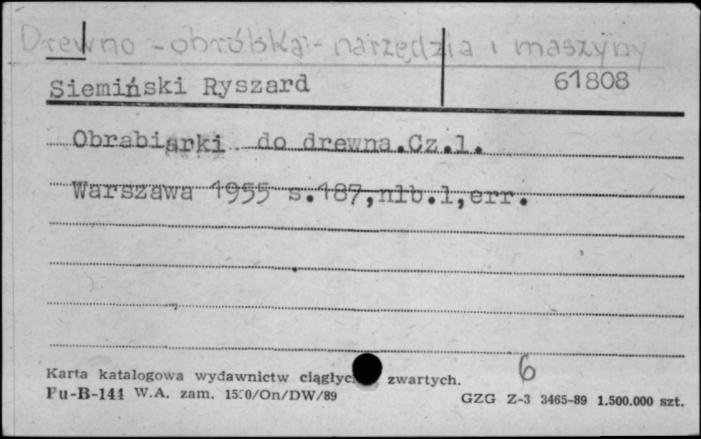 Drewno - obróbka - narzędzia i maszyny
Siemiński Ryszard 61808
Obrabiarki do drewna.Cz.1.
Warszawa 1955 s.187,nlb.1,err.
6
Karta katalogowa wydawnictw ciągłyc zwartych.
Pu-B-144 W.A. zam. /On/DW/89 GZG Z-3 3465-89 1.500.000 szt.